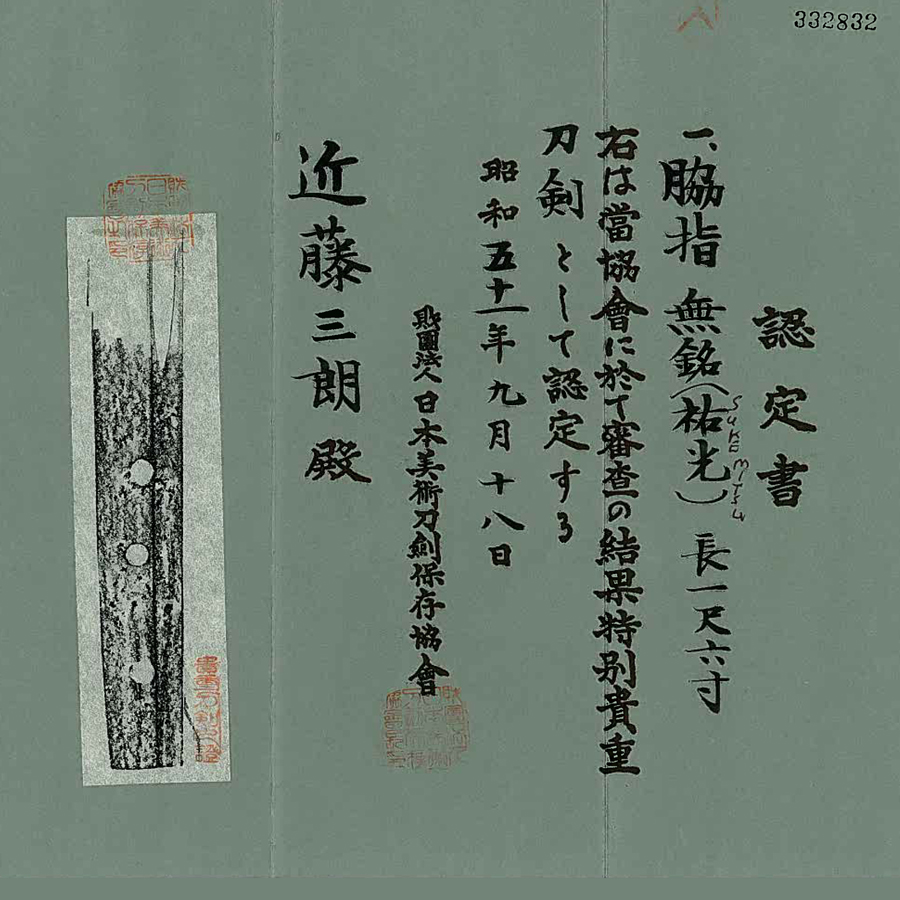 332832
認定書
一、脇指 無銘(祐光) 長一尺六寸
SUKEMITSU
右は當協會に於て審査の結果特別貴重
刀剣として認定する
昭和五十一年九月十八日
財團法人日本美術刀剣保存協會
近藤三朗殿